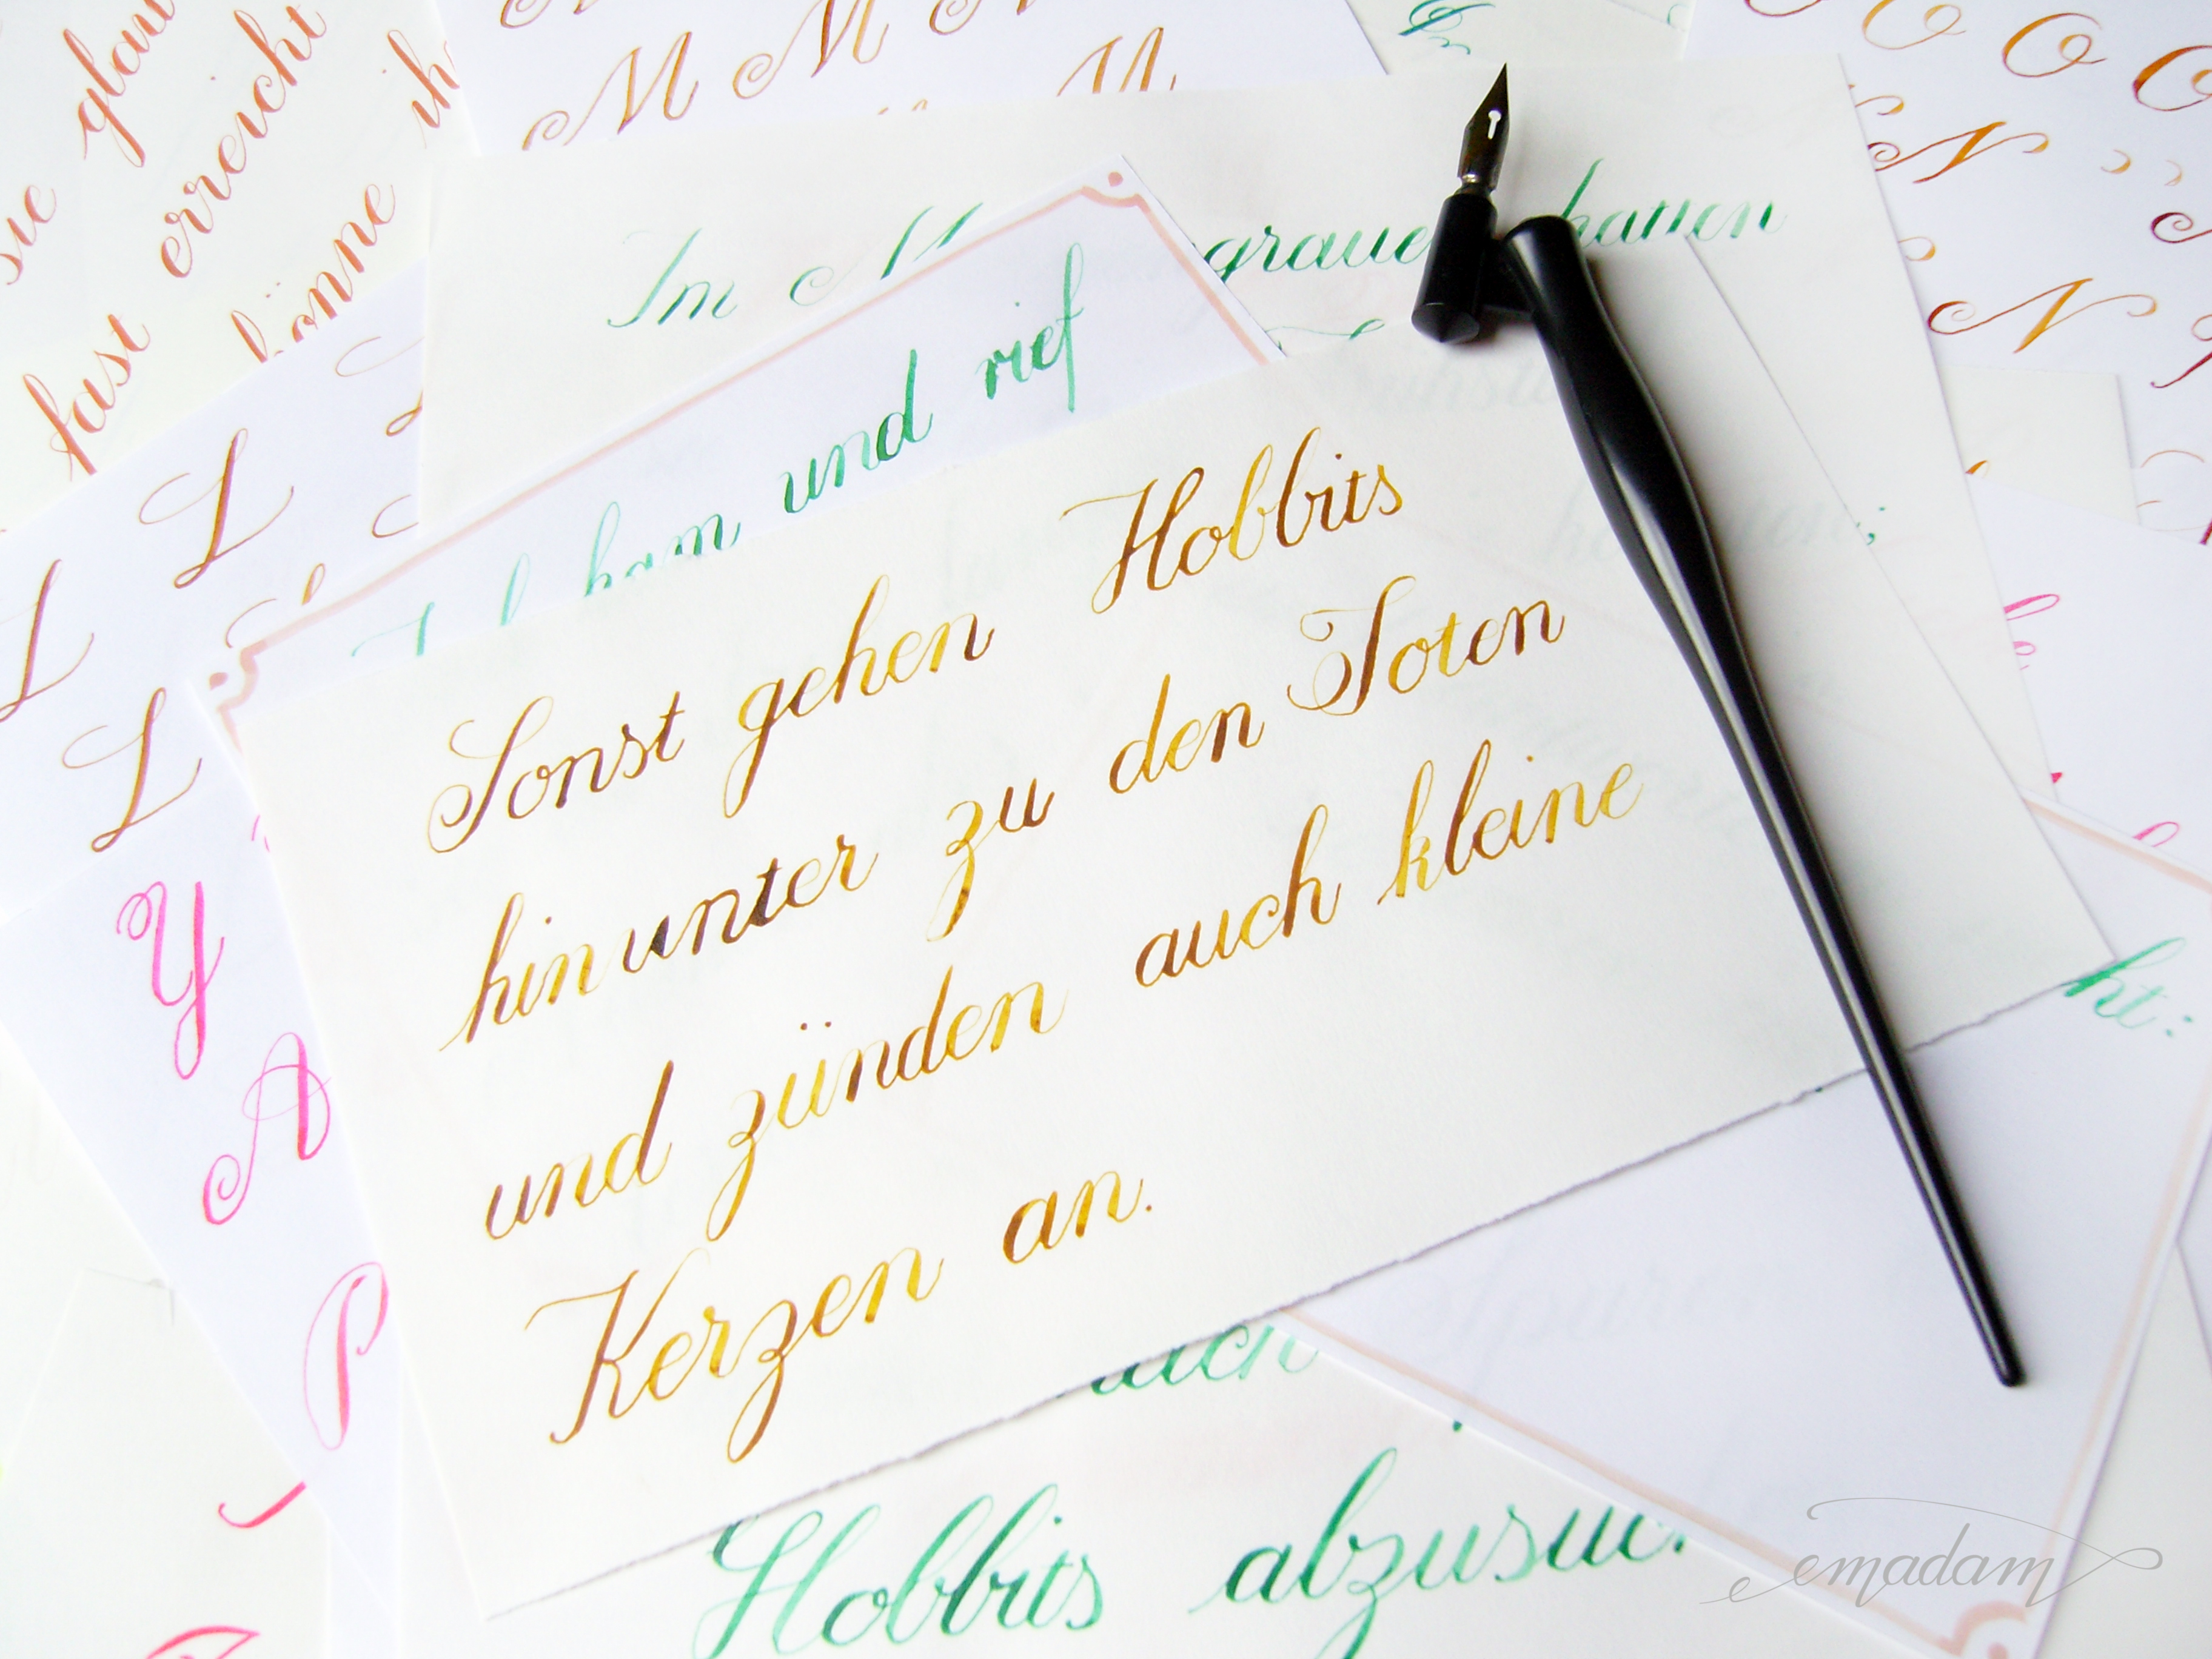 glau
sie erreicht ih
fast könne
M M M M
O O O
N N
N
Im graue hatten
kam und rief
L
L
L
Sonst gehen Hobbits
hinunter zu den Toten
und zünden auch kleine
Kerzen an.
Y
A
P
ht:
Hobbits abzusuc
emadam